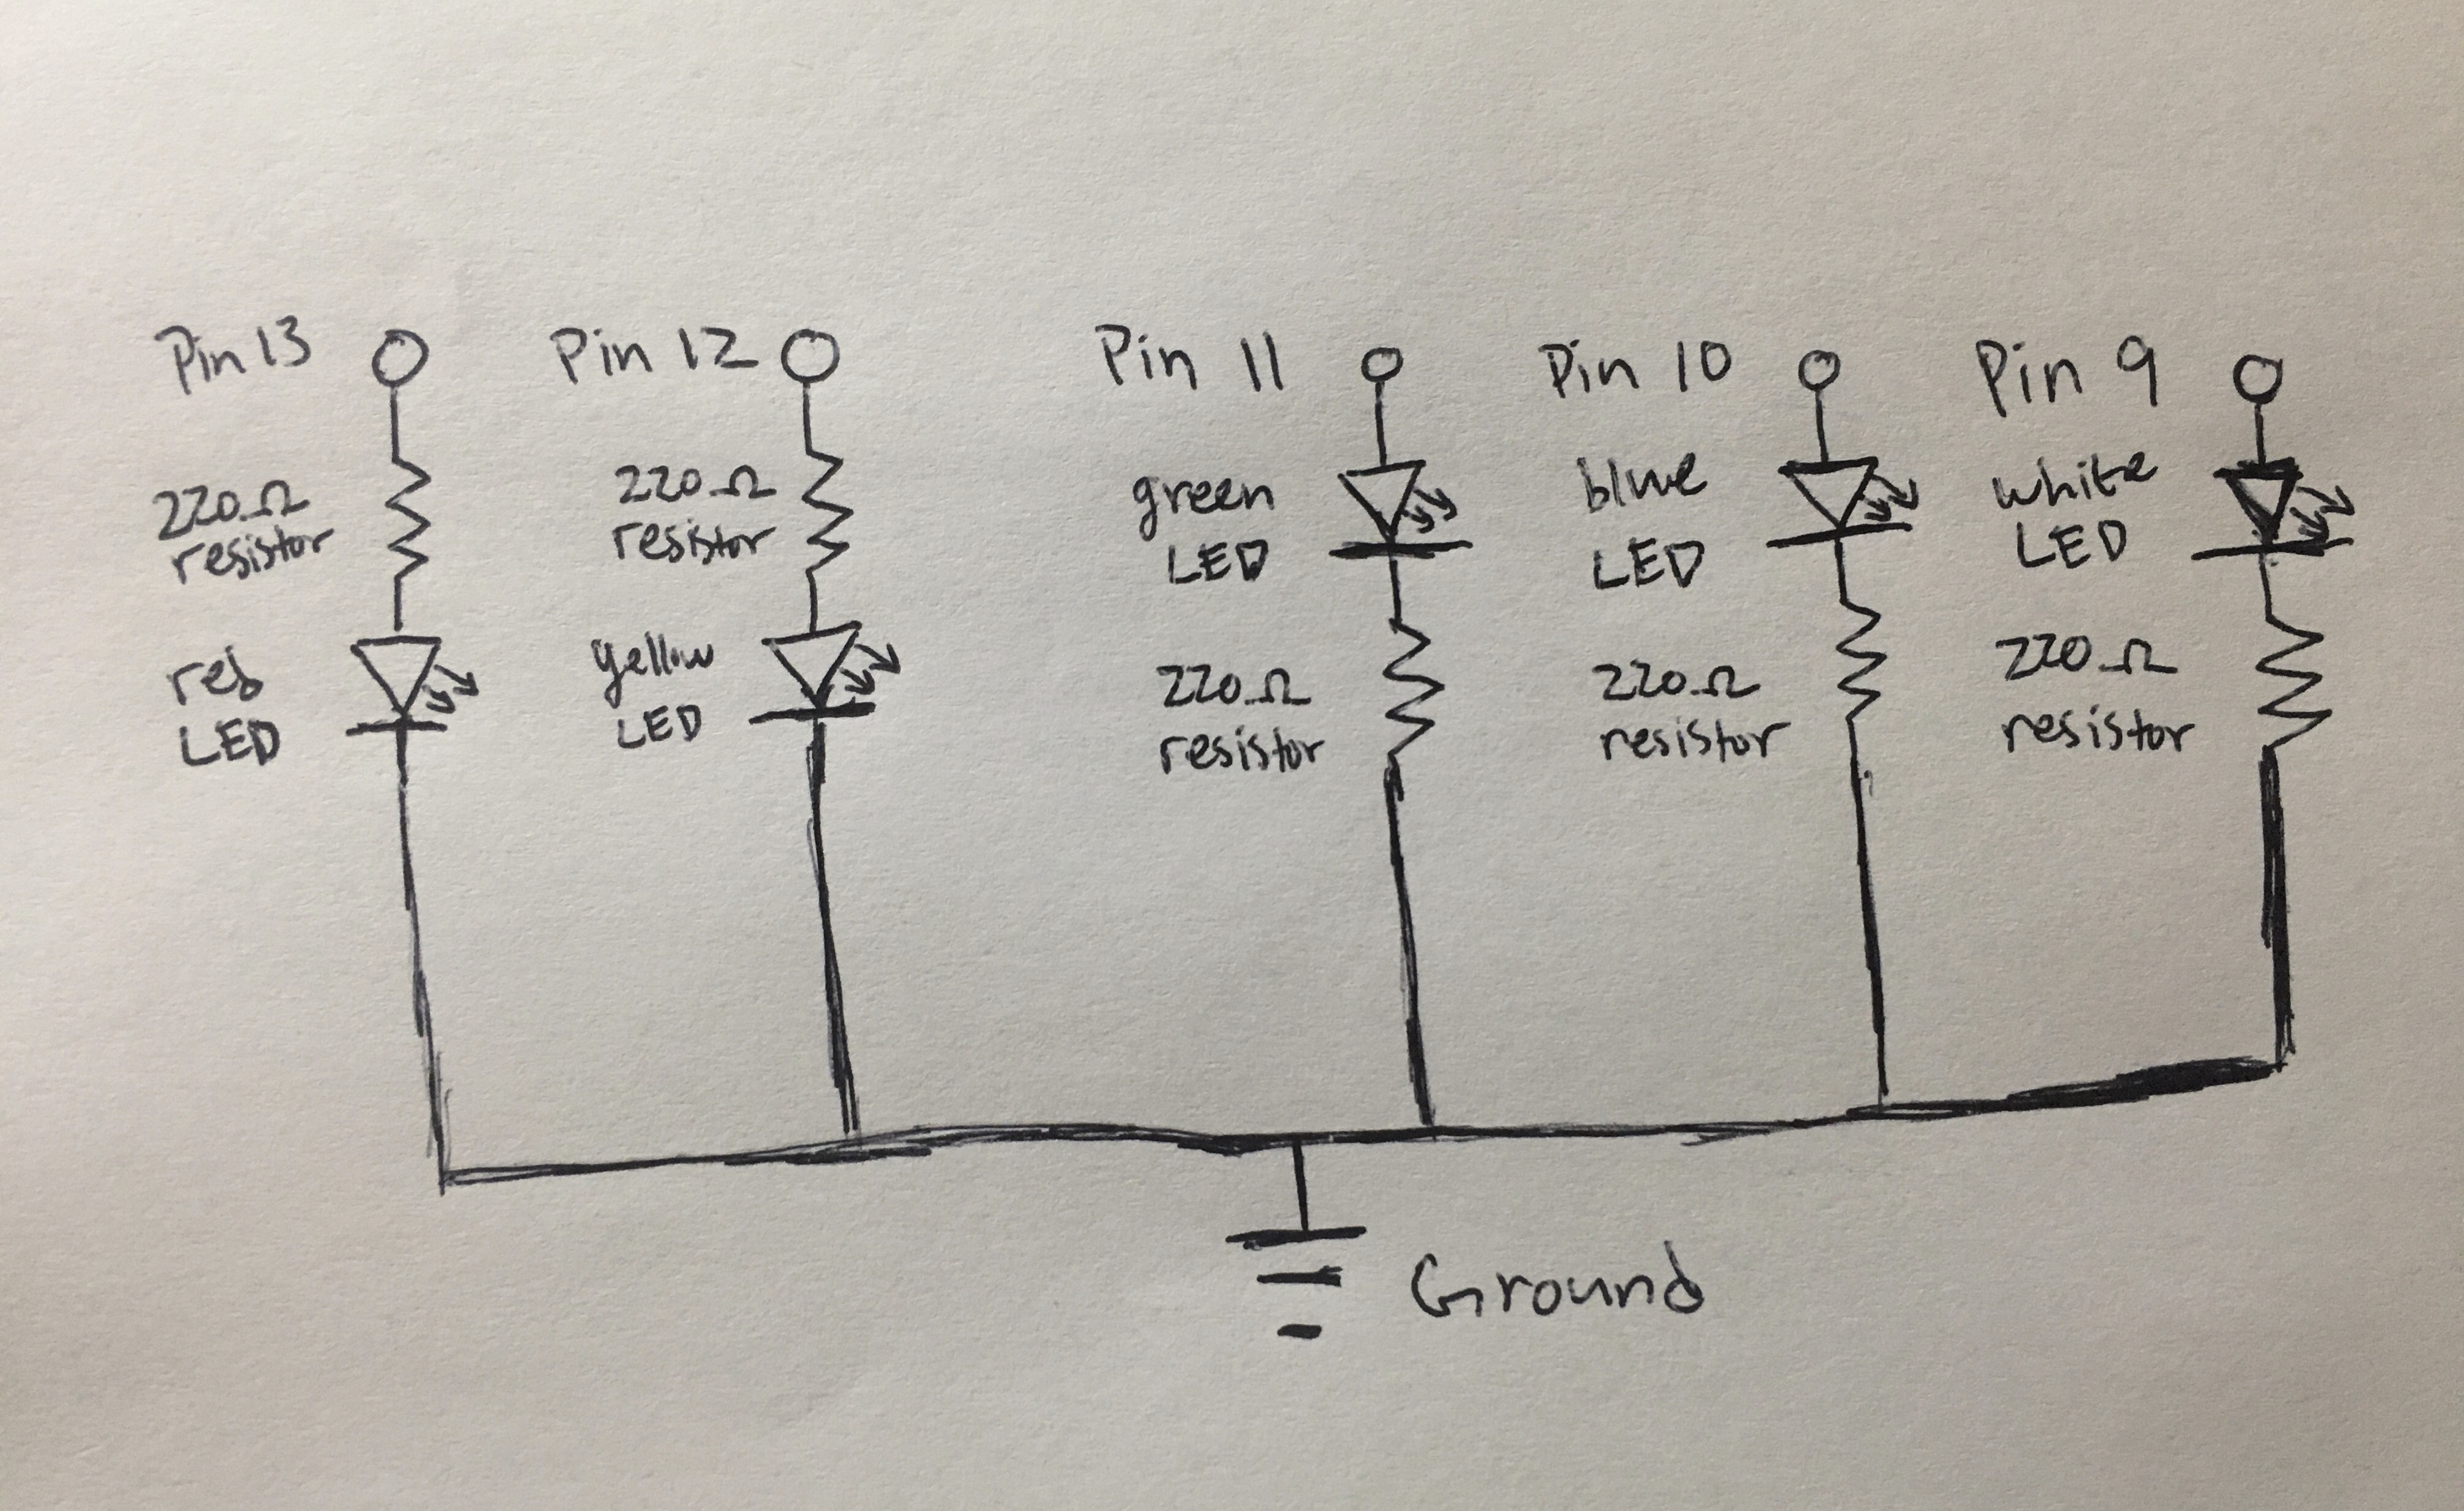 Pin 13
220Ω
resistor
red
LED
Pin 12
220Ω
resistor
yellow
LED
Pin 11
green
LED
220Ω
resistor
Pin 10
blue
LED
220Ω
resistor
Pin 9
white
LED
220Ω
resistor
Ground